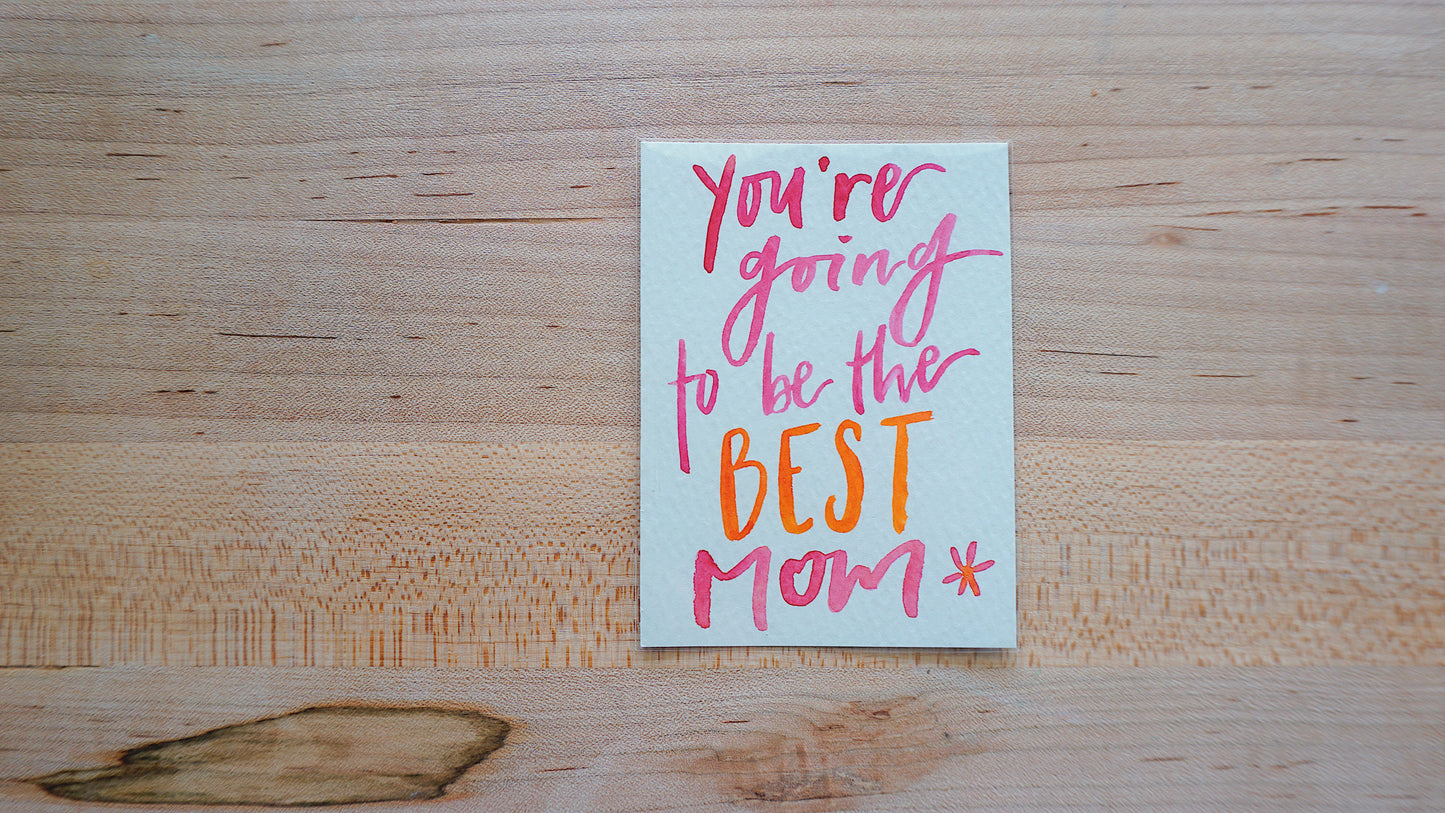 You're
going
to be the
BEST
Mom